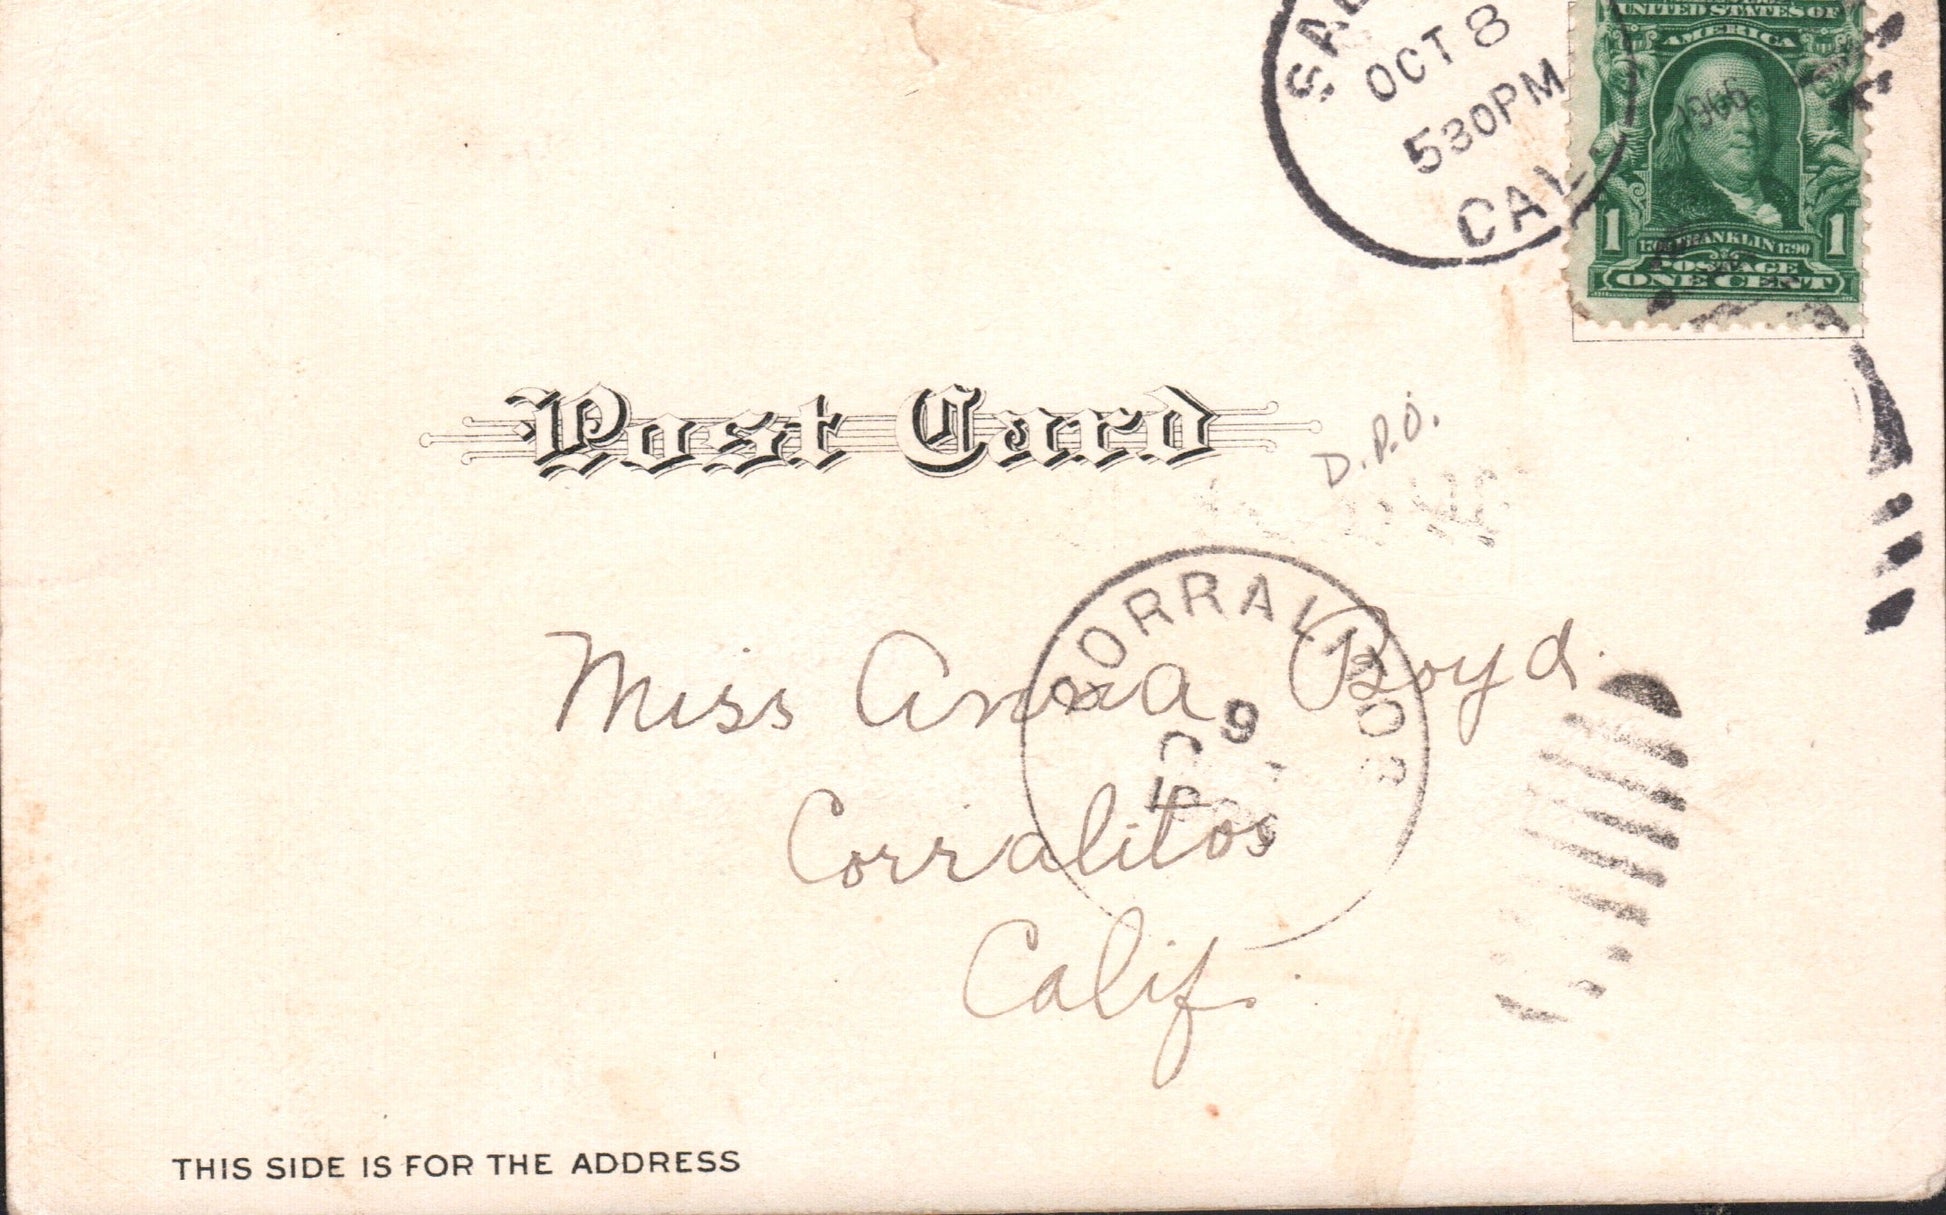 OCT 8
530PM
CAL
UNITED STATES OF
AMERICA
1906
1 FRANKLIN 1790 1
POSTAGE
ONE CENT
Post Card
D.P.O.
CORRALITOS
9
Miss Anna Boyd.
Corralitos
Calif.
THIS SIDE IS FOR THE ADDRESS